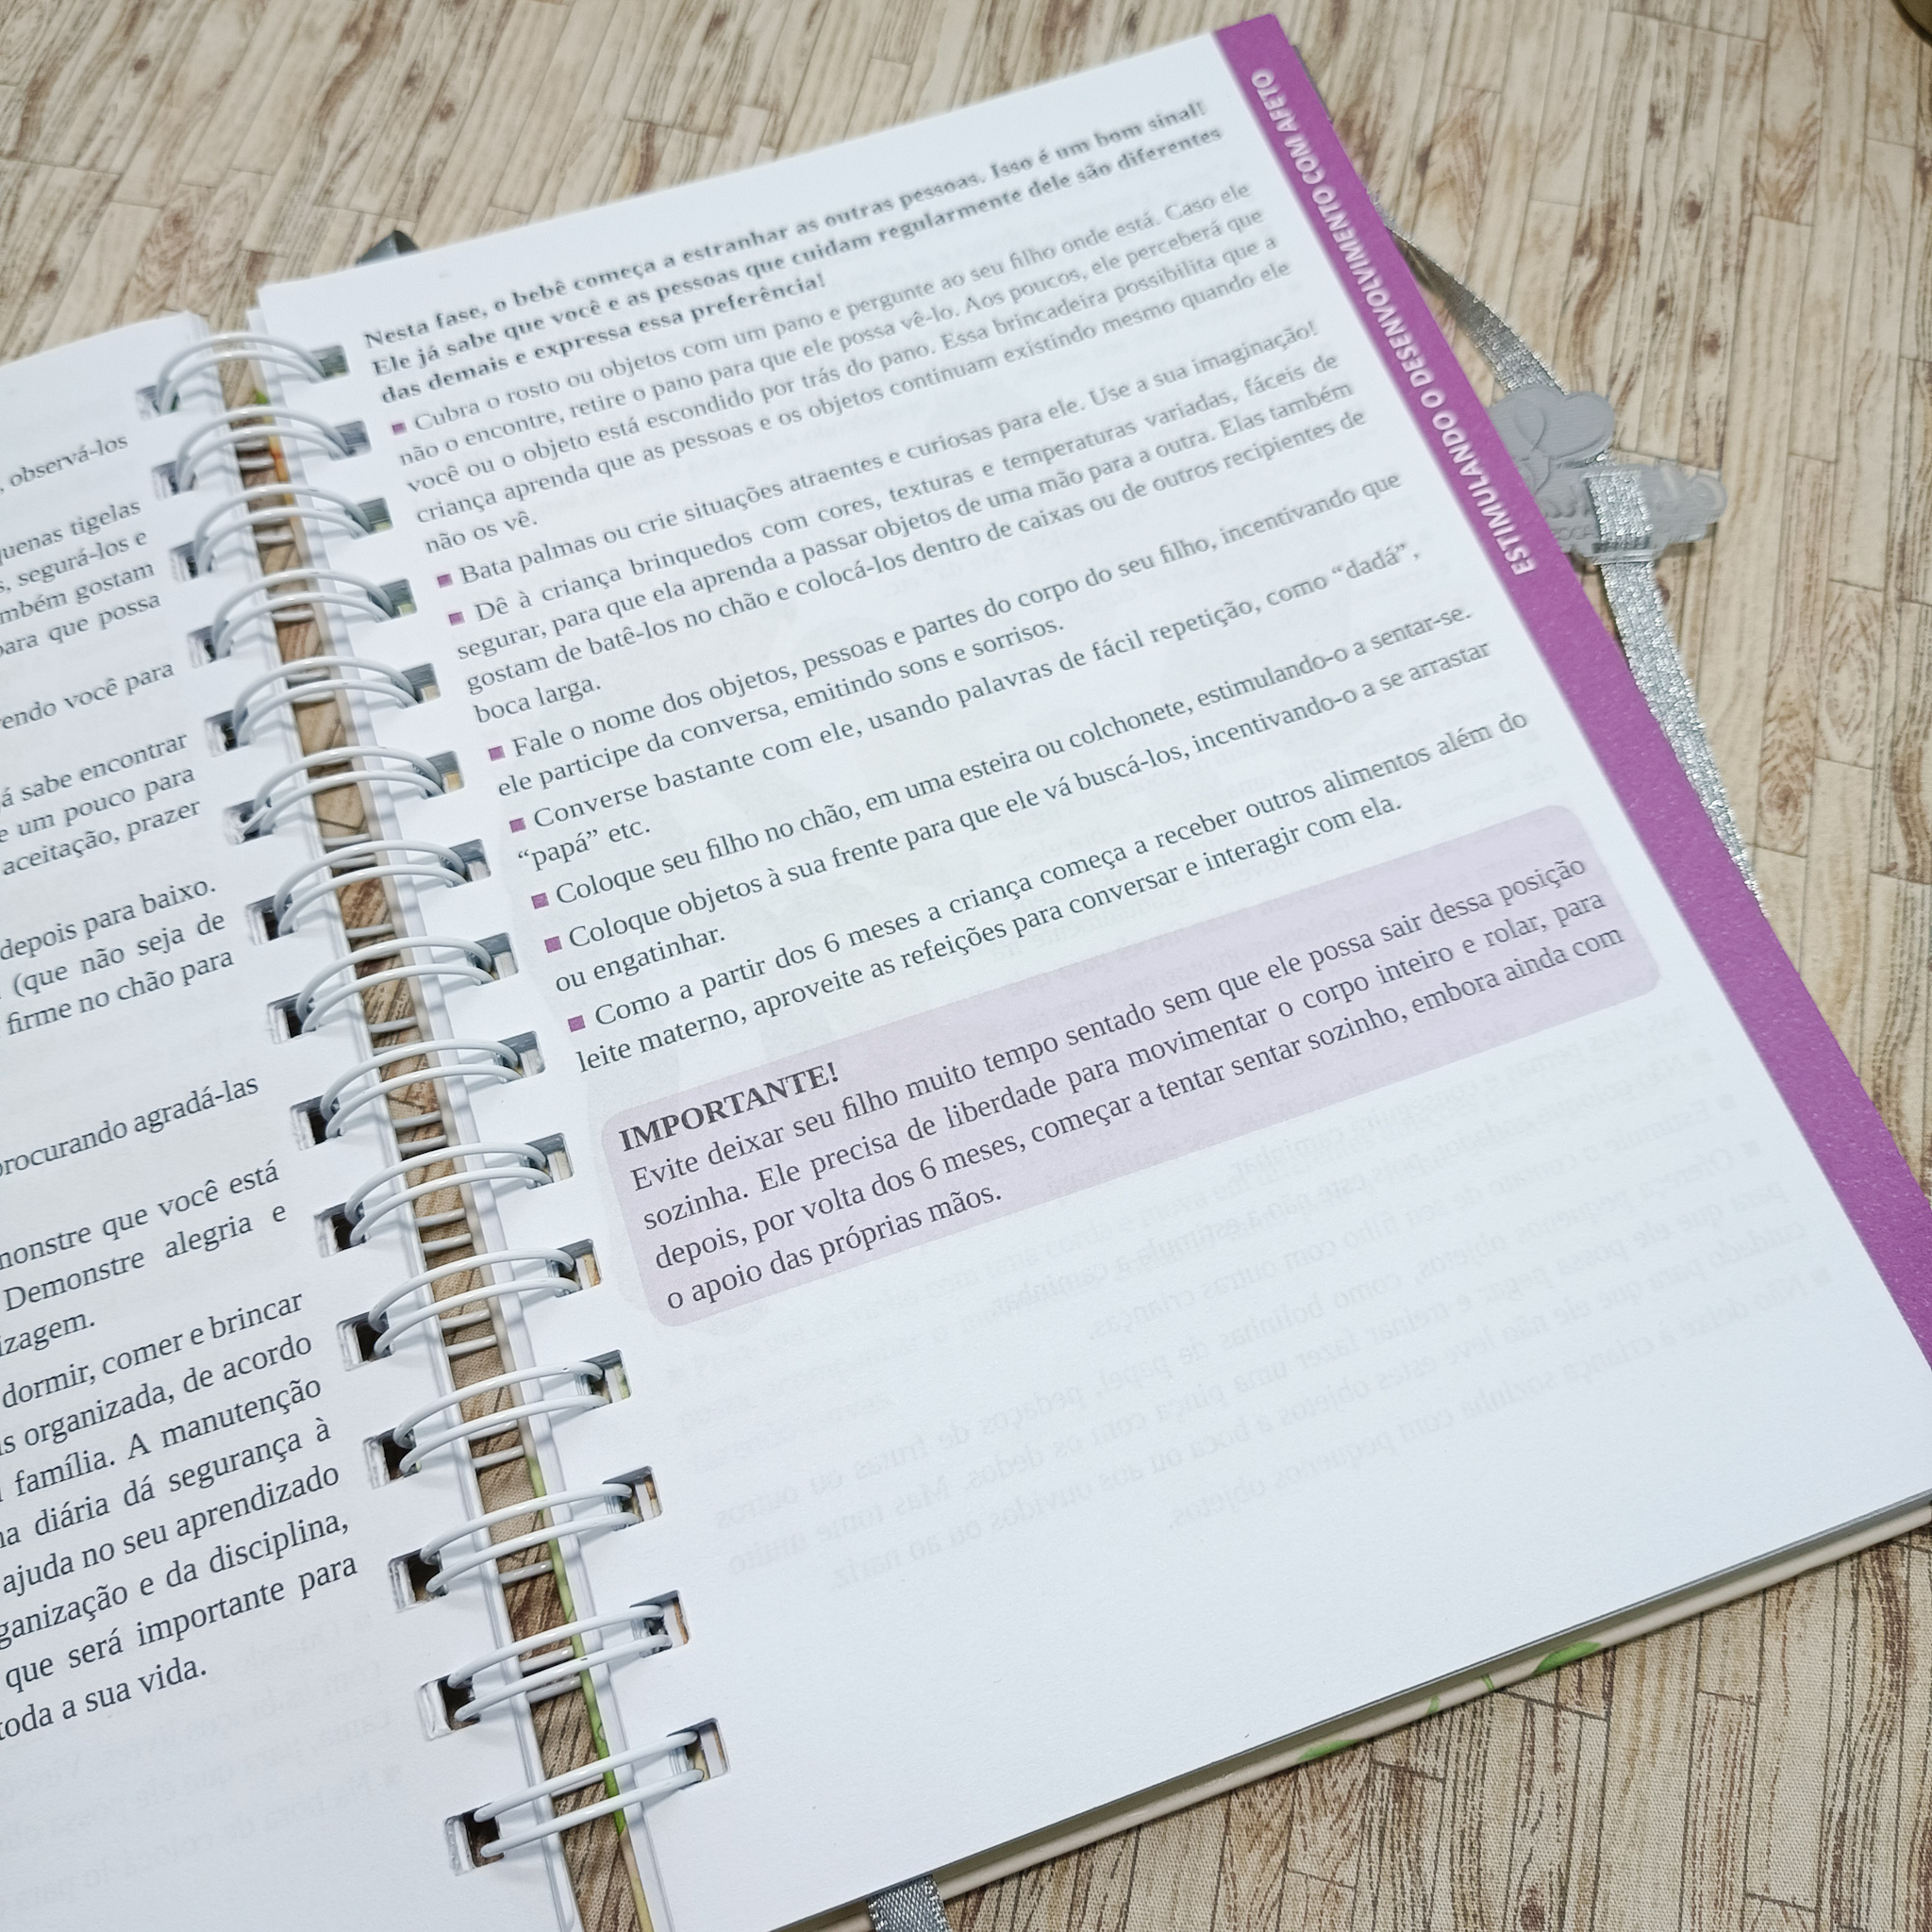 , observá-los
quenas tigelas
s, segurá-los e
mbém gostam
para que possa
endo você para
á sabe encontrar
e um pouco para
aceitação, prazer
depois para baixo.
(que não seja de
firme no chão para
procurando agradá-las
monstre que você está
Demonstre alegria e
izagem.
dormir, comer e brincar
organizada, de acordo
família. A manutenção
diária dá segurança à
ajuda no seu aprendizado
ganização e da disciplina,
que será importante para
toda a sua vida.
Nesta fase, o bebê começa a estranhar as outras pessoas. Isso é um bom sinal!
Ele já sabe que você e as pessoas que cuidam regularmente dele são diferentes
das demais e expressa essa preferência!
■ Cubra o rosto ou objetos com um pano e pergunte ao seu filho onde está. Caso ele
não o encontre, retire o pano para que ele possa vê-lo. Aos poucos, ele perceberá que
você ou o objeto está escondido por trás do pano. Essa brincadeira possibilita que a
criança aprenda que as pessoas e os objetos continuam existindo mesmo quando ele
não os vê.
■ Bata palmas ou crie situações atraentes e curiosas para ele. Use a sua imaginação!
■ Dê à criança brinquedos com cores, texturas e temperaturas variadas, fáceis de
segurar, para que ela aprenda a passar objetos de uma mão para a outra. Elas também
gostam de batê-los no chão e colocá-los dentro de caixas ou de outros recipientes de
boca larga.
■ Fale o nome dos objetos, pessoas e partes do corpo do seu filho, incentivando que
ele participe da conversa, emitindo sons e sorrisos.
■ Converse bastante com ele, usando palavras de fácil repetição, como “dadá” ,
“papá” etc.
■ Coloque seu filho no chão, em uma esteira ou colchonete, estimulando-o a sentar-se.
■ Coloque objetos à sua frente para que ele vá buscá-los, incentivando-o a se arrastar
ou engatinhar.
■ Como a partir dos 6 meses a criança começa a receber outros alimentos além do
leite materno, aproveite as refeições para conversar e interagir com ela.
IMPORTANTE!
Evite deixar seu filho muito tempo sentado sem que ele possa sair dessa posição
sozinha. Ele precisa de liberdade para movimentar o corpo inteiro e rolar, para
depois, por volta dos 6 meses, começar a tentar sentar sozinho, embora ainda com
o apoio das próprias mãos.
ESTIMULANDO O DESENVOLVIMENTO COM AFETO